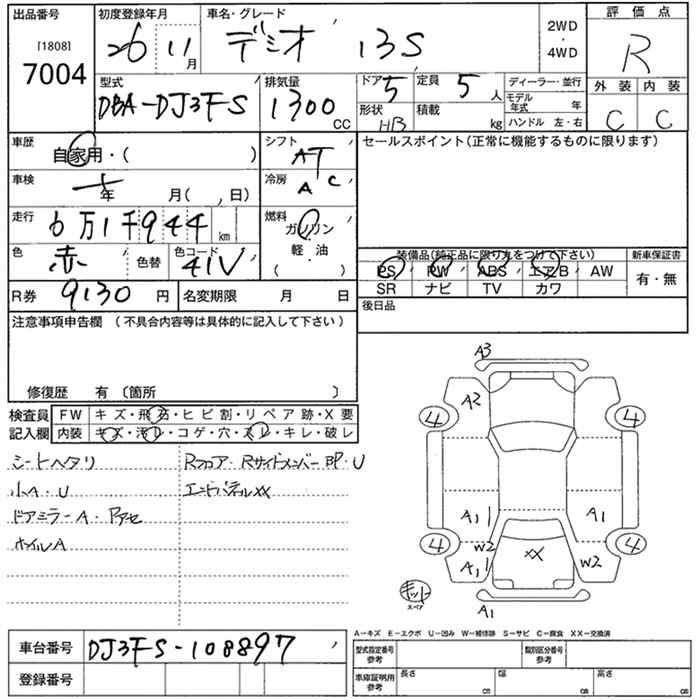 出品番号
[1808]
7004
初度登録年月
26 11月
車名・グレード
デミオ 13S
2WD
・
4WD
評価点
R
型式
DBA-DJ3FS
排気量
1300 CC
ドア 5
定員 5 人
ディーラー・並行
モデル年式 年
形状 HB
積載 kg
ハンドル 左・右
外装 内装
C C
車歴
自家用・( )
シフト
AT
セールスポイント(正常に機能するものに限ります)
車検
年 月( , 日)
冷房
AC
走行
6万1千944 km
燃料
ガソリン
軽・油
( )
色
赤
色替
色コード
41V
装備品(純正品に限り丸をつけて下さい)
新車保証書
PS PW ABS エアB AW
SR ナビ TV カワ
有・無
R券 9130 円
名変期限 月 日
後日品
注意事項申告欄 (不具合内容等は具体的に記入して下さい)
修復歴 有 〔箇所 〕
検査員
記入欄
FW キズ・飛石・ヒビ割・リペア跡・X要
内装 キズ・汚レ・コゲ・穴・スレ・キレ・破レ
シートヘタリ
小A・U
ドアミラーA・Pアセ
ホイルA
Rフロア・RサイドメンバーBP・U
エンドパネルXX
A3
A2
4 4
A1 A1
4 4
W2
A1
XX
W2
キット
スペア
A1
A-キズ E-エクボ U-凹み W-補修跡 S-サビ C-腐食 XX-交換済
車台番号 DJ3FS-108897
登録番号
型式指定番号
参考
類別区分番号
参考
車庫証明用
参考
長さ cm
幅 cm
高さ cm